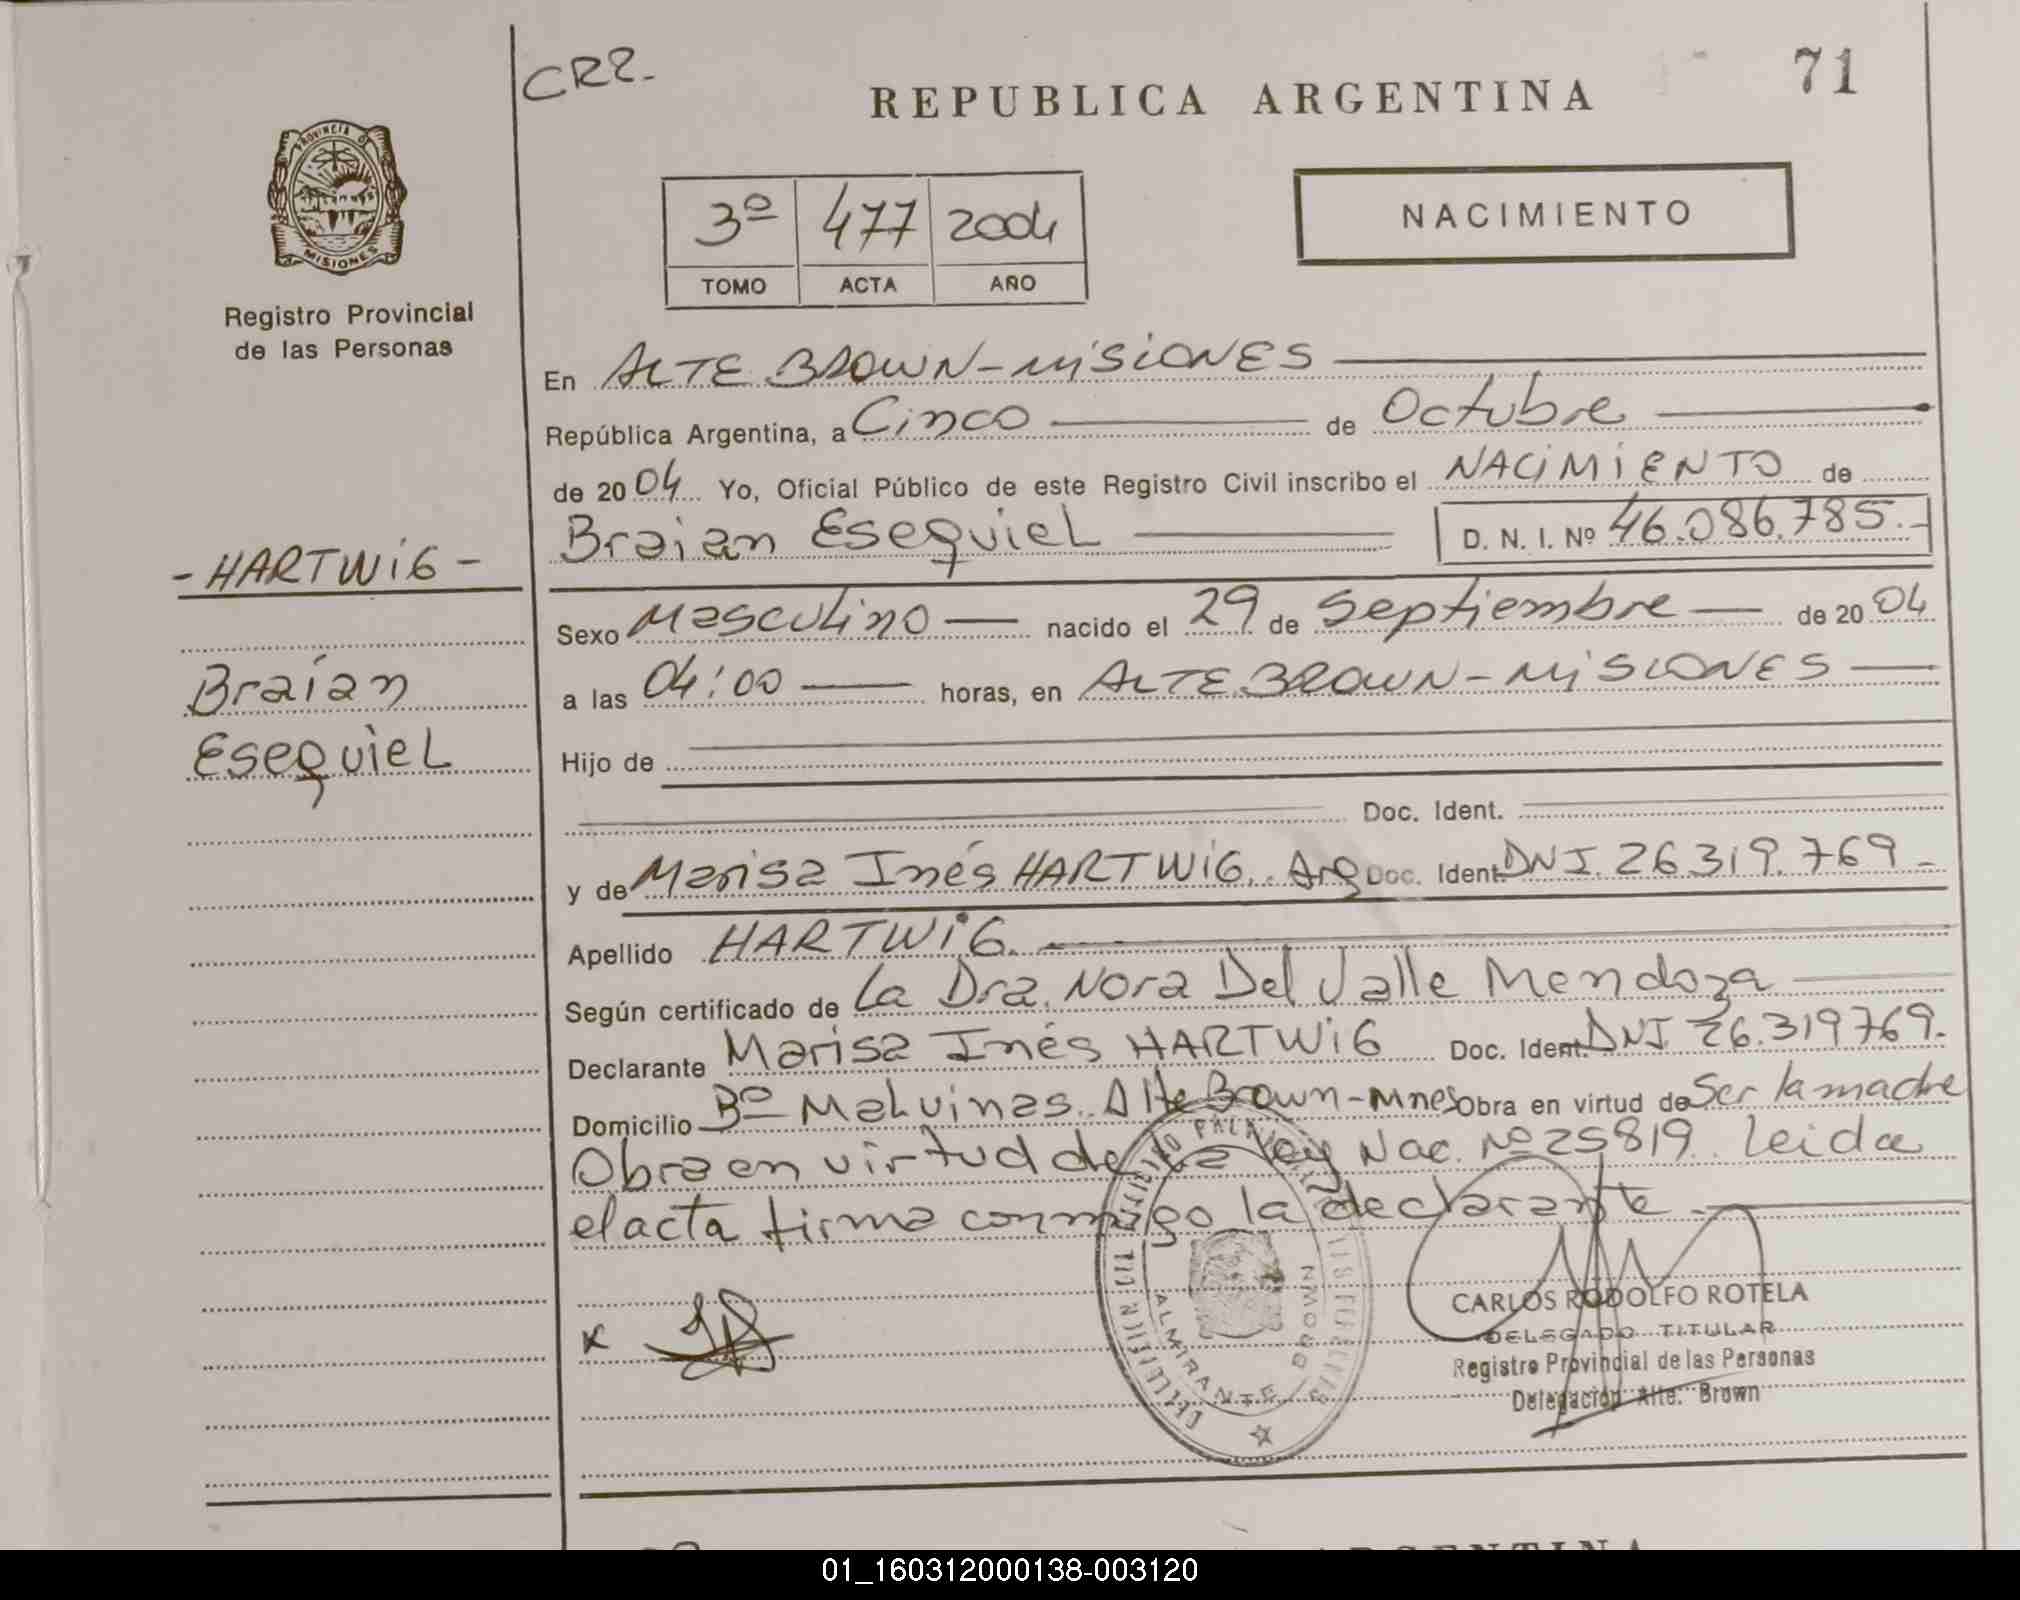 CRZ-
REPUBLICA ARGENTINA
71
PROVINCIA DE
MISIONES
Registro Provincial
de las Personas
3º 477 2004
TOMO ACTA AÑO
NACIMIENTO
En ALTE BROWN-MISIONES
República Argentina, a Cinco de Octubre
de 2004 Yo, Oficial Público de este Registro Civil inscribo el NACIMIENTO de
Braian Esequiel D. N. I. Nº 46.086.785.-
- HARTWIG -
Sexo Masculino nacido el 29 de Septiembre de 2004
Braian
a las 04:00 horas, en ALTE BROWN-MISIONES
Esequiel
Hijo de
Doc. Ident.
y de Marisa Inés HARTWIG. Arg Doc. Ident. DNI. 26.319.769-
Apellido HARTWIG.
Según certificado de La Dra. Nora Del Valle Mendoza
Declarante Marisa Inés HARTWIG Doc. Ident. DNI 26.319769.
Domicilio Bº Malvinas. Alte Brown-Mnes Obra en virtud de Ser la madre
Obra en virtud de la ley Nac. Nº 25819. Leida
el acta firma conmigo la declarante
x
ALMIRANTE BROWN
CARLOS RODOLFO ROTELA
DELEGADO TITULAR
Registro Provincial de las Personas
Delegación Alte. Brown
01_160312000138-003120